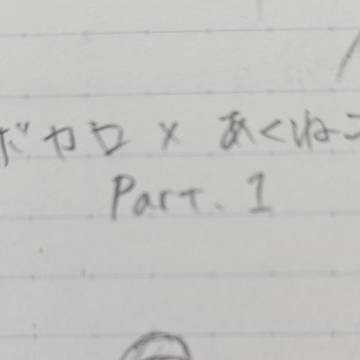 ボカロ × あくねこ
Part. 1